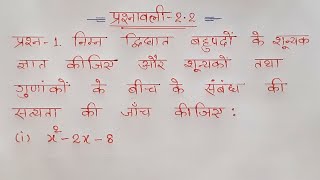 प्रश्नावली-2.2
प्रश्न-1. निम्न द्विघात बहुपदों के शून्यक
ज्ञात कीजिए और शून्यकों तथा
गुणांकों के बीच के संबंध की
सत्यता की जाँच कीजिए :
(i) x² - 2x - 8